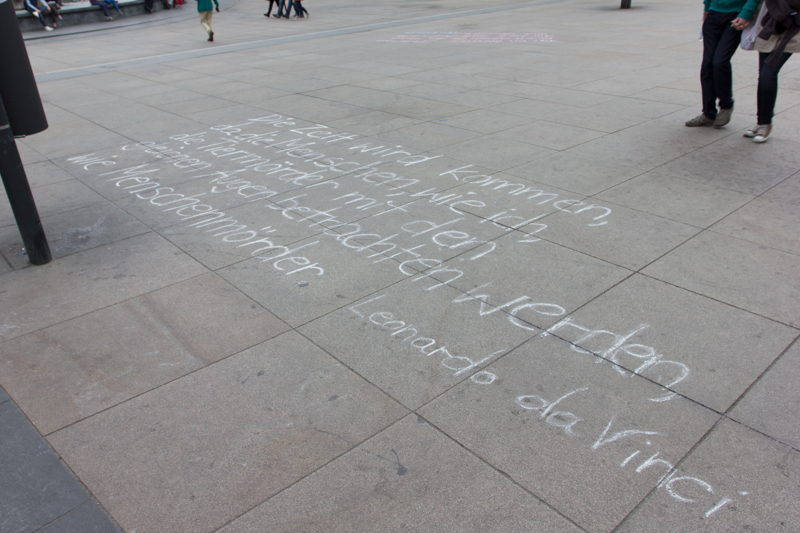 Die Zeit wird kommen,
da die Menschen wie ich,
die Tiermörder mit den
gleichen Augen betrachten werden,
wie Menschenmörder
Leonardo da Vinci